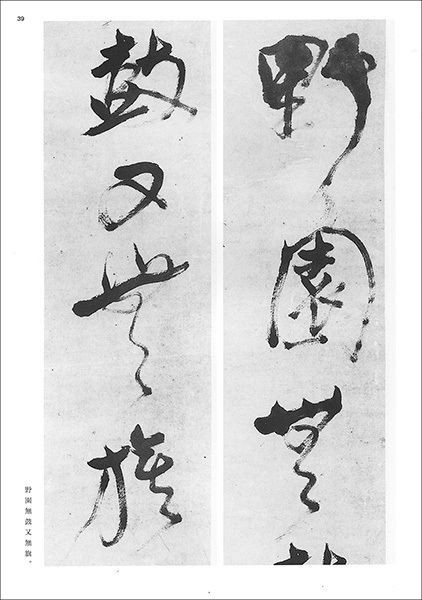 39
野園無鼓
鼓又無旗
野園無鼓又無旗。